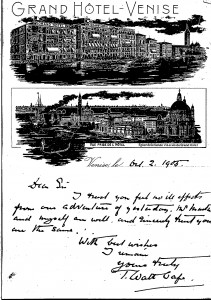 GRAND HOTEL-VENISE
VUE PRISE DE L'HÔTEL
Venise, le Oct. 2. 1905
Dear Sir
I trust you feel no ill effects
from our adventure of yesterday. Mr
and myself are well, and sincerely trust you
are the same.
With best wishes
I remain
Yours truly
T. Watt